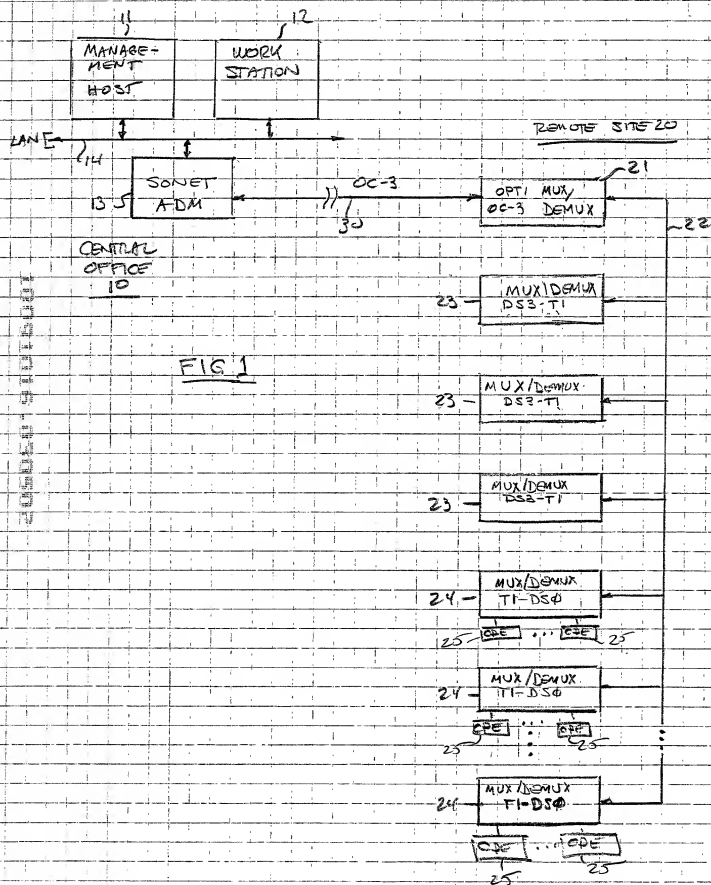 11
12
MANAGE-
MENT
HOST
WORK
STATION
REMOTE SITE 20
LAN
14
21
SONET
ADM
13
OC-3
30
OPTI MUX/
OC-3 DEMUX
22
CENTRAL
OFFICE
10
MUX/DEMUX
DS3-T1
23
FIG 1
MUX/DEMUX
DS3-T1
23
MUX/DEMUX
DS3-T1
23
MUX/DEMUX
T1-DSØ
24
25 CPE ... CPE 25
MUX/DEMUX
T1-DSØ
24
25 CPE CPE 25
MUX/DEMUX
T1-DSØ
24
CPE ... CPE
25 25